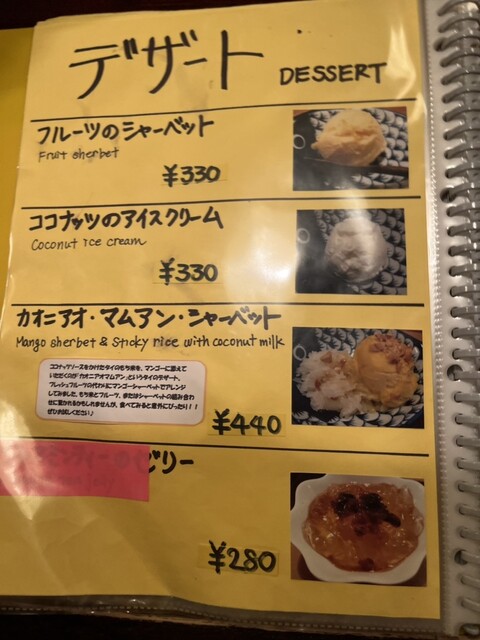 デザート DESSERT
フルーツのシャーベット
Fruit sherbet
¥330
ココナッツのアイスクリーム
Coconut ice cream
¥330
カオニアオ・マムアン・シャーベット
Mango sherbet & Stioky rice with coconut milk
ココナッツソースをかけたタイのもち米を、マンゴーに添えて
いただくのが「カオニアオマムアン」というタイのデザート。
フレッシュフルーツの代わりにマンゴーシャーベットでアレンジ
してみました。もち米とフルーツ、またはシャーベットの組み合わ
せに驚かれるかもしれませんが、食べてみると意外にぴったり！！
ぜひお試しください♪
¥440
ゼリー
¥280